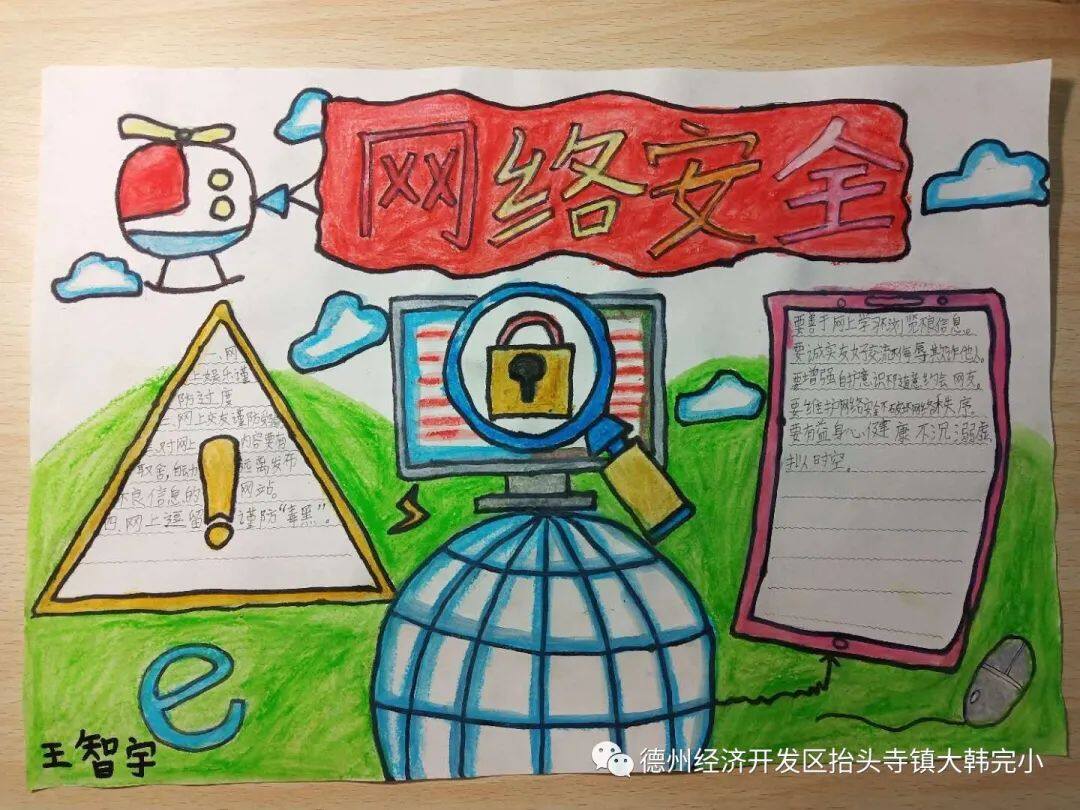 网络安全
一、网
上娱乐谨
防过度
二、网上交友谨防受骗
三、对网上 内容要有
取舍,自动 远离发布
不良信息的 网站。
四、网上逗留 谨防“毒黑”。
要善于网上学习不浏览不良信息。
要诚实友好交流不侮辱欺诈他人。
要增强自护意识不随意约会网友。
要维护网络安全不破坏网络秩序。
要有益身心健康不沉溺虚
拟时空。
e
王智宇
德州经济开发区抬头寺镇大韩完小